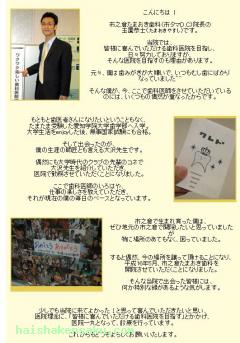 こんにちは！
市之倉たまおき歯科(市タマO_O)院長の
玉置泰士(たまおきやすし)です。
当院では、
皆様に喜んでいただける歯科医院を目指し、
日々努力しておりますが、
そんな医院を目指すのも理由があります。
元々、僕は歯みがきが大嫌いで、いつもむし歯にばかり
なっていました
そんな僕が、今、ここで歯科医師をさせていただいている
のには、いくつもの偶然が重なったからです。
もともと歯医者さんになりたいということもなく、
たまたま受験した愛知学院大学歯学部へ入学。
大学生活をenjoyした後、無事国家試験にも合格。
そして出会ったのが、
僕の生涯の師匠とも言える大沢先生です。
偶然にも大学時代のクラブの先輩のコネで
大沢先生を紹介していただき、
医院で勤務させていただくことになりました。
ここで歯科医師のいろはや、
仕事の楽しさを教えていただき、
それが現在の僕の毎日のベースとなっています。
市之倉で生まれ育った僕は、
ぜひ地元の市之倉で開院したいと思っていました
が
特に場所のあてもなく、困っていました。
すると偶然、今の場所を譲って頂けることになり、
平成16年5月、市之倉たまおき歯科を
開院させていただくことになりました。
そんな当院で出会った皆様には、
何か特別な縁があるような気がします。
少しでも当院に来てよかった！と思って喜んでいただきたいと思い、
医院理念に、「皆様に喜んでいただける歯科医院を目指す」とかかげ、
医院一丸となって、診療を行っています。
これからもどうぞよろしくお願いいたします。